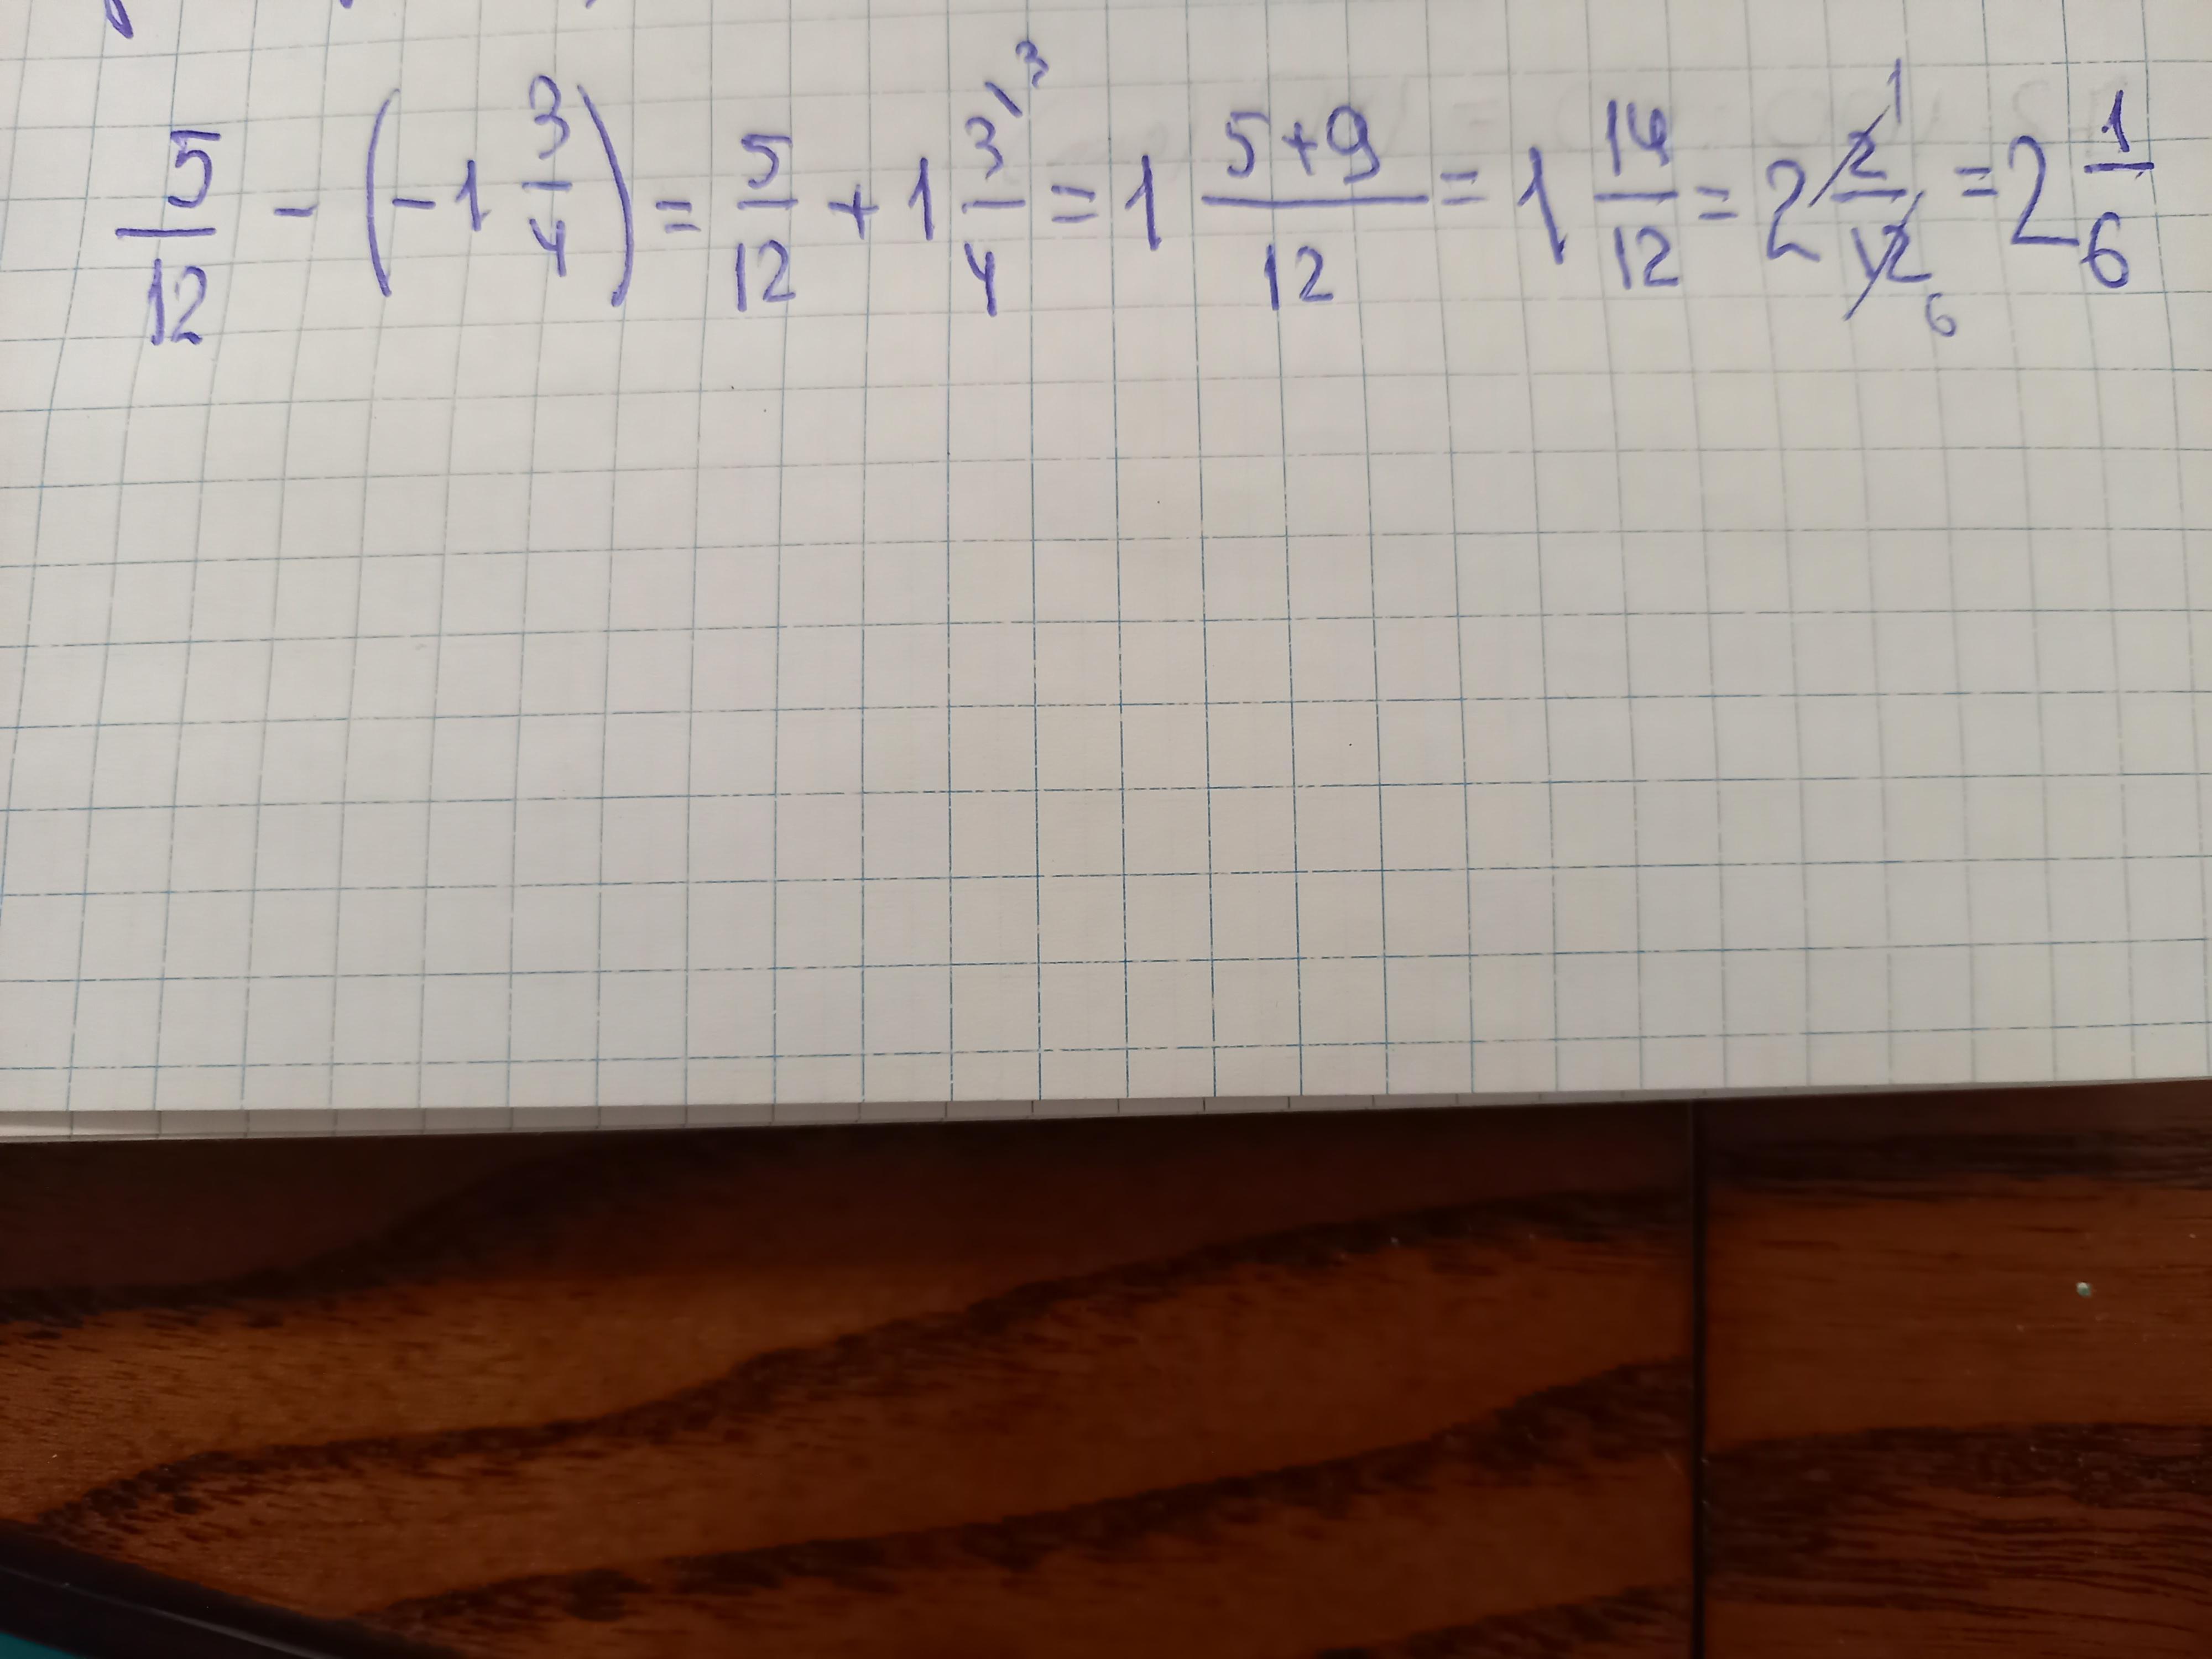 5/12 - (-1 3/4) = 5/12 + 1 3/4 \3 = 1 5+9/12 = 1 14/12 = 2 2/12 1 6 = 2 1/6